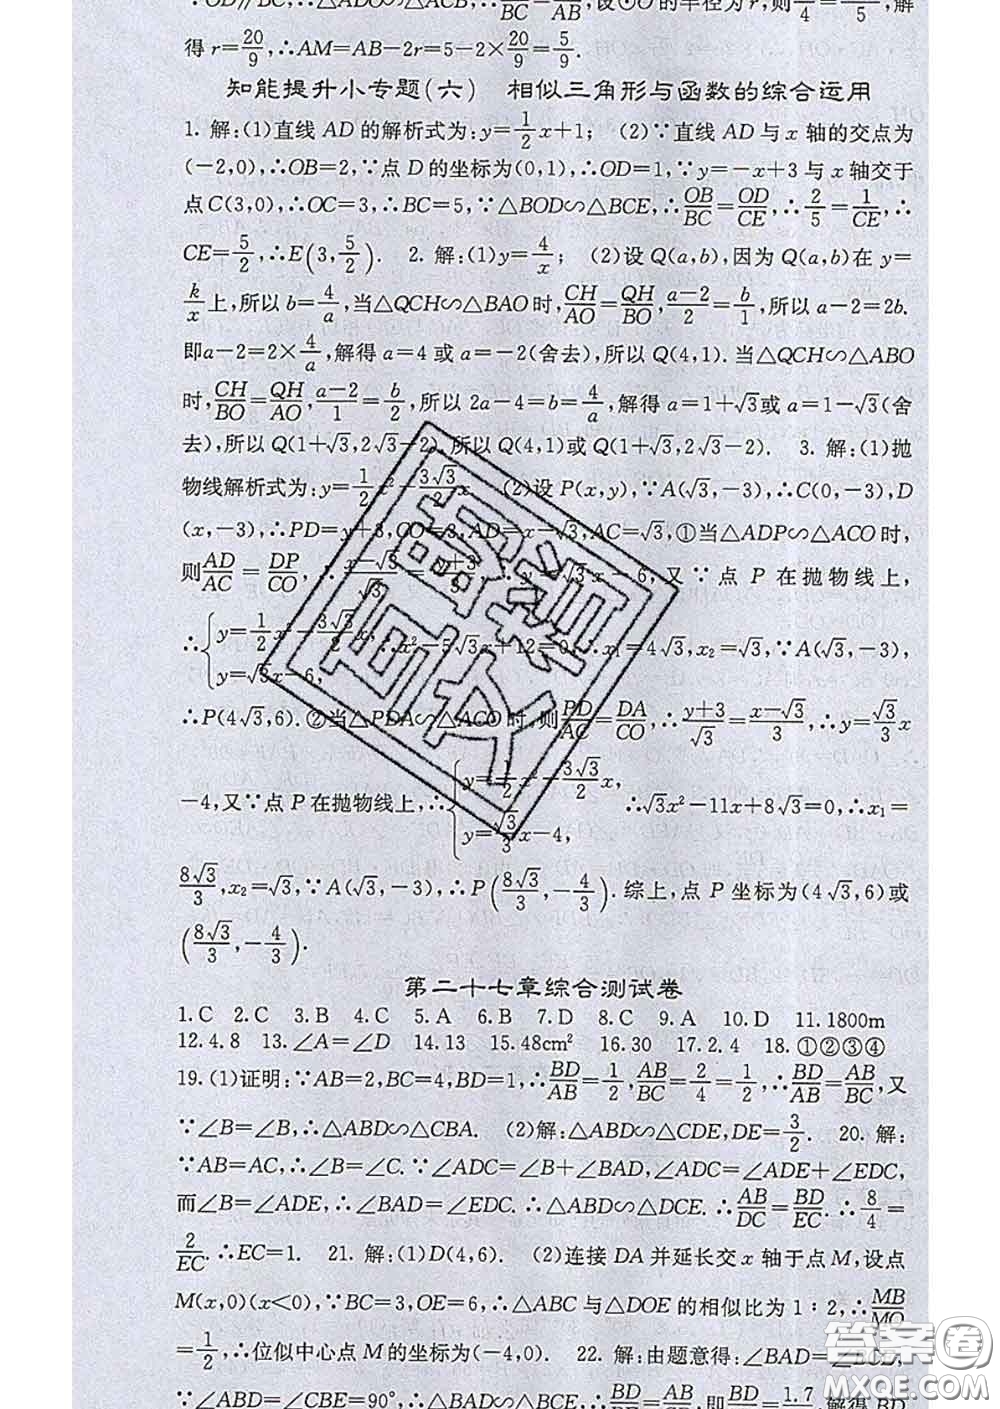 ∵OD∥BC,∴△ADO∽△ACB,∴ /BC= /AB,设⊙O的半径为r,则 /4= /5,解
得r=20/9,∴AM=AB-2r=5-2×20/9=5/9.
知能提升小专题(六) 相似三角形与函数的综合运用
1. 解:(1)直线AD的解析式为:y=1/2x+1; (2)∵直线AD与x轴的交点为
(-2,0),∴OB=2,∵点D的坐标为(0,1),∴OD=1,∵y=-x+3与x轴交于
点C(3,0),∴OC=3,∴BC=5,∵△BOD∽△BCE,∴OB/BC=OD/CE,∴2/5=1/CE,∴
CE=5/2,∴E(3,5/2). 2. 解:(1)y=4/x; (2)设Q(a,b),因为Q(a,b)在y=
k/x上,所以b=4/a,当△QCH∽△BAO时,CH/AO=QH/BO,a-2/2=b/1,所以a-2=2b.
即a-2=2×4/a,解得a=4或a=-2(舍去),所以Q(4,1).当△QCH∽△ABO
时,CH/BO=QH/AO,a-2/1=b/2,所以2a-4=b=4/a,解得a=1+√3或a=1-√3(舍
去),所以Q(1+√3,2√3-2).所以Q(4,1)或Q(1+√3,2√3-2). 3. 解:(1)抛
物线解析式为:y=1/2x²-3√3/2x (2)设P(x,y),∵A(√3,-3),∴C(0,-3),D
(x,-3),∴PD=y+3,CO=3,AD=x-√3,AC=√3,①当△ADP∽△ACO时,
则AD/AC=DP/CO,∴x-√3/√3=y+3/3,∴y=√3x-6,又∵点P在抛物线上,
∴{y=1/2x²-3√3/2x, y=√3x-6, ∴x²-5√3x+12=0,∴x₁=4√3,x₂=√3,∵A(√3,-3),
∴P(4√3,6).②当△PDA∽△ACO时,则PD/AC=DA/CO,∴y+3/√3=x-√3/3,∴y=√3/3x
-4,又∵点P在抛物线上,∴{y=1/2x²-3√3/2x, y=√3/3x-4, ∴√3x²-11x+8√3=0,∴x₁=
8√3/3,x₂=√3,∵A(√3,-3),∴P(8√3/3,-4/3).综上,点P坐标为(4√3,6)或
(8√3/3,-4/3).
第二十七章综合测试卷
1.C 2.C 3.B 4.C 5.A 6.B 7.D 8.C 9.A 10.D 11.1800m
12.4.8 13.∠A=∠D 14.13 15.48cm² 16.30 17.2.4 18.①②③④
19.(1)证明:∵AB=2,BC=4,BD=1,∴BD/AB=1/2,AB/BC=2/4=1/2,∴BD/AB=AB/BC,又
∵∠B=∠B,∴△ABD∽△CBA. (2)解:△ABD∽△CDE,DE=3/2. 20. 解:
∵AB=AC,∴∠B=∠C.∵∠ADC=∠B+∠BAD,∠ADC=∠ADE+∠EDC,
而∠B=∠ADE,∴∠BAD=∠EDC.∴△ABD∽△DCE.∴AB/DC=BD/EC.∴8/4=
2/EC.∴EC=1. 21. 解:(1)D(4,6). (2)连接DA并延长交x轴于点M,设点
M(x,0)(x<0),∵BC=3,OE=6,∴△ABC与△DOE的相似比为1:2,∴MB/MO
=1/2,∴位似中心点M的坐标为(-4,0). 22. 解:由题意得:∠BAD=∠BCD,
∵∠ABD=∠CBE=90°,∴△BAD∽△BCE,∴BD/ =AB/ ,即BD/ =1.7/ ,解得BD
答案圈
MXQE.COM